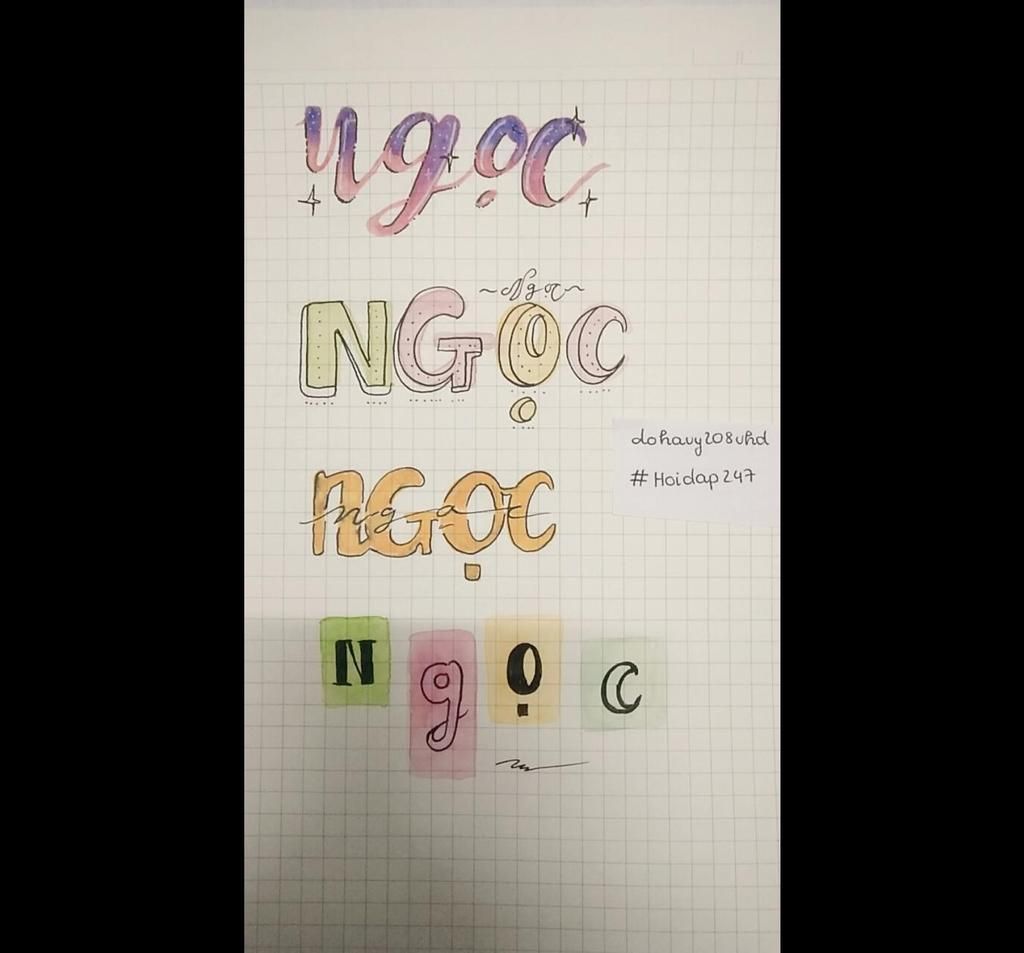 ngọc
~Ngọc~
NGỌC
dohavy208vhd
#Hoidap247
NGỌC
ngọc
NgỌc